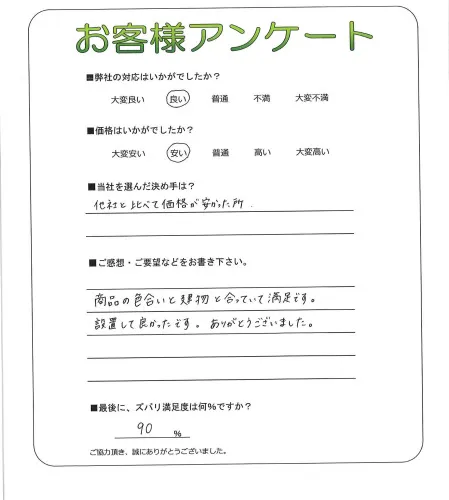 お客様アンケート
■弊社の対応はいかがでしたか？
大変良い 良い 普通 不満 大変不満
■価格はいかがでしたか？
大変安い 安い 普通 高い 大変高い
■当社を選んだ決め手は？
他社と比べて価格が安かった所
■ご感想・ご要望などをお書き下さい。
商品の色合いと建物と合っていて満足です。
設置して良かったです。ありがとうございました。
■最後に、ズバリ満足度は何％ですか？
90 ％
ご協力頂き、誠にありがとうございました。